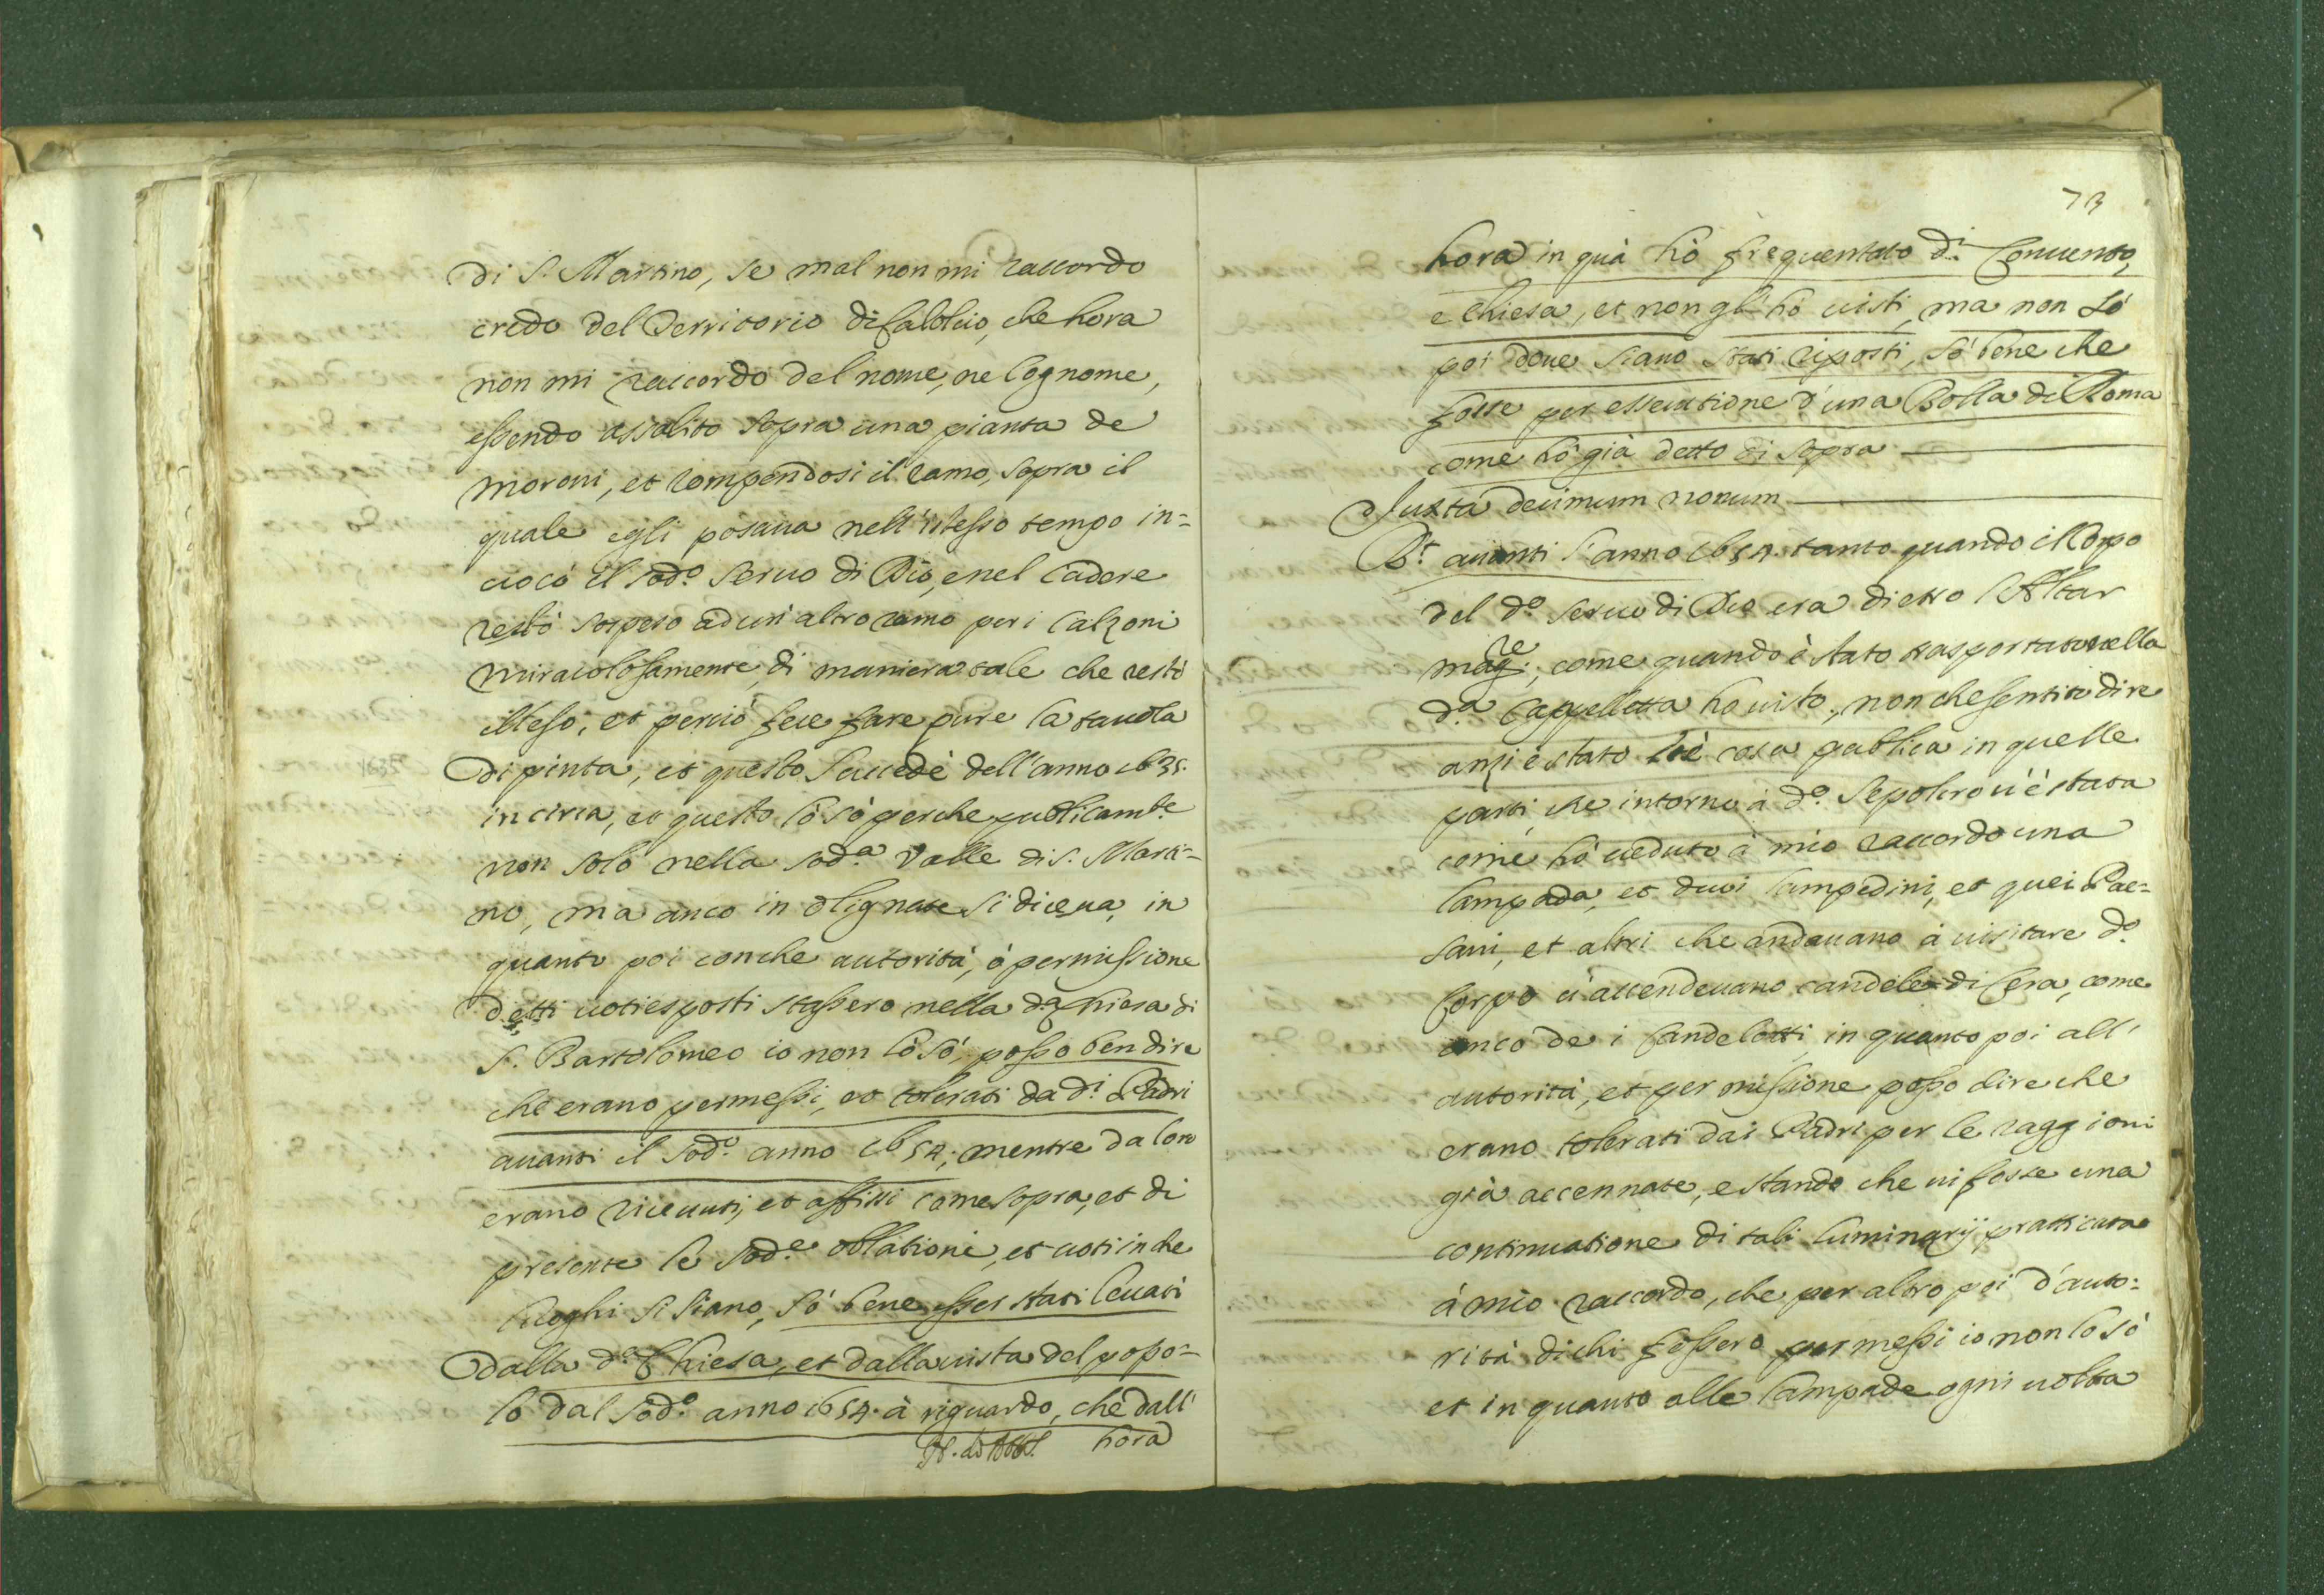 di S. Martino, se mal non mi raccordo
credo del Territorio di Calolcio, che hora
non mi raccordo del nome, ne Cognome,
essendo assalito sopra una pianta de
moroni, et rompendosi il ramo, sopra il
quale egli posava nell'istesso tempo in=
uocò il sod.o Seruo di Dio, e nel cadere
restò sospeso ad un'altro ramo per i Calzoni
miracolosamente, di maniera tale che restò
illeso, et perciò fece fare pure la tauola
dipinta, et questo succedè dell'anno 1635.
in circa, et questo lo sò perche publicam.te
non solo nella sod.a Valle di S. Marti=
no, ma anco in Olignate si diceua, in
quanto poi con che autorità, ò permissione
detti uoti esposti stassero nella d.a Chiesa di
S. Bartolomeo io non lo sò, posso ben dire
che erano permessi, et tolerati da d.i Padri
auanti il sod.o anno 1654, mentre da loro
erano riceuuti, et affissi come sopra, et di
presente le sod.e oblationi, et uoti in che
luoghi si siano, sò bene esser stati leuati
dalla d.a Chiesa, et dalla uista del popo=
lo dal sod.o anno 1654. à riguardo, che dall'
hora
73
hora in quà hò frequentato d.i Conuento,
e Chiesa, et non gl'hò uisti, ma non sò
poi doue siano stati riposti, sò bene che
fosse per essecutione d'una Bolla di Roma
come hò già detto di sopra
Juxta decimum nonum
R.t auanti l'anno 1654. tanto quando il Corpo
del d.o Seruo di Dio era dietro l'Altar
mag.re, come quando è stato trasportato nella
d.a Cappelletta ho uisto, non che sentito dire
anzi è stato cosa publica in quelle
parti, che intorno à d.o Sepolcro u'è stata
come hò ueduto à mio raccordo una
lampada, et duoi lampedini, et quei Pae=
sani, et altri che andauano à uisitare d.o
Corpo u'accendeuano candele di Cera, come
anco de i Candelotti, in quanto poi all'
autorità, et permissione posso dire che
erano tolerati dai Padri per le raggioni
già accennate, e stando che ui fosse una
continuatione di tali luminarij pratticata
à mio raccordo, che per altro poi d'auto=
rità di chi fossero permessi io non lo sò
et in quanto alle lampade ogni uolta